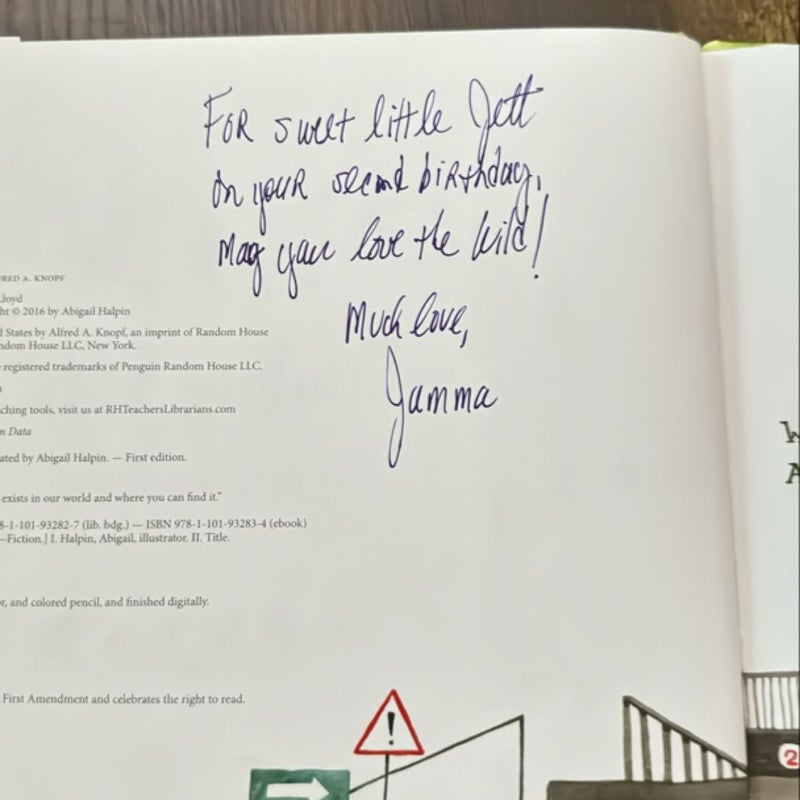 FOR sweet little Jett
on your second birthday,
May you love the wild!
Much love,
Jamma
RED A. KNOPF
Lloyd
ht © 2016 by Abigail Halpin
d States by Alfred A. Knopf, an imprint of Random House
ndom House LLC, New York.
registered trademarks of Penguin Random House LLC.
ching tools, visit us at RHTeachersLibrarians.com
n Data
ated by Abigail Halpin. — First edition.
exists in our world and where you can find it."
8-1-101-93282-7 (lib. bdg.) — ISBN 978-1-101-93283-4 (ebook)
—Fiction.] I. Halpin, Abigail, illustrator. II. Title.
r, and colored pencil, and finished digitally.
First Amendment and celebrates the right to read.
!
W
A
2